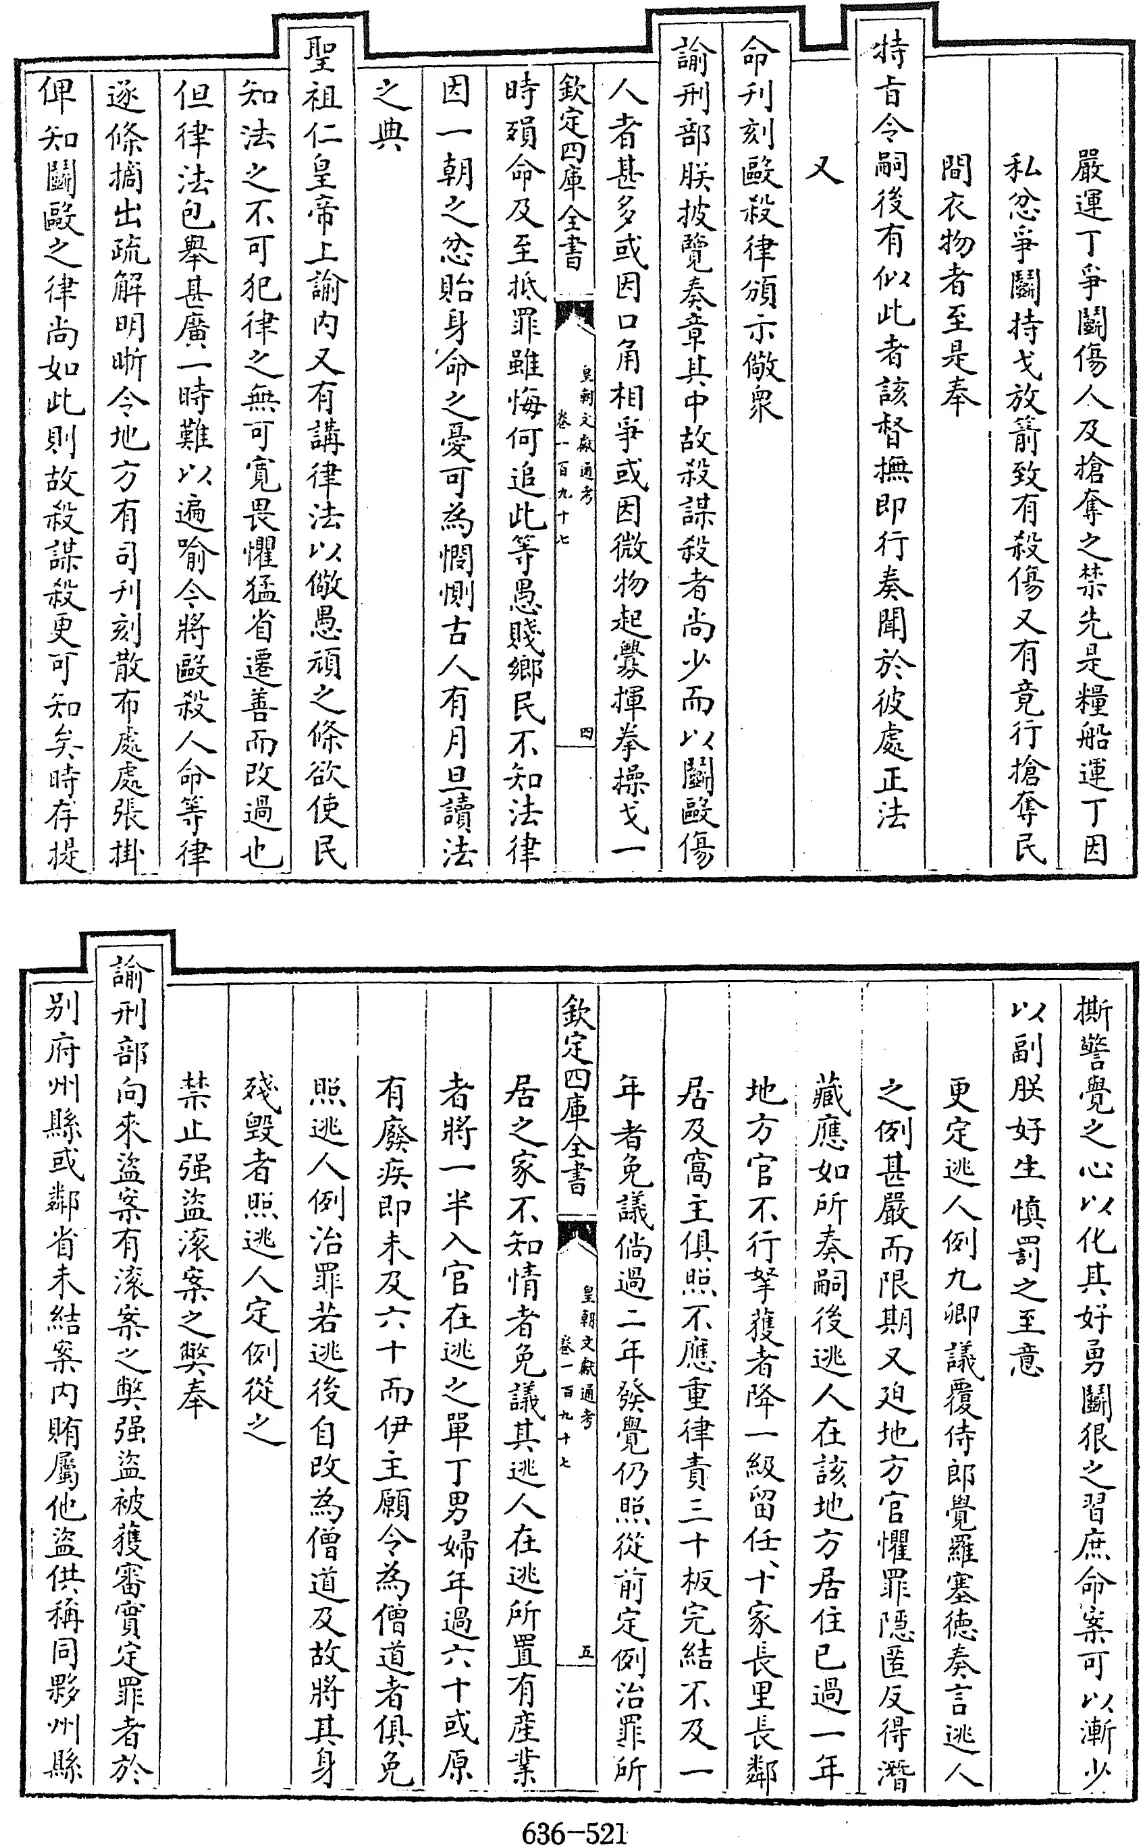 嚴運丁爭鬭傷人及搶奪之禁先是糧船運丁因
私忿爭鬭持戈放箭致有殺傷又有竟行搶奪民
間衣物者至是奉
特旨令嗣後有似此者該督撫即行奏聞於彼處正法
又
命刊刻毆殺律頒示儆衆
諭刑部朕披覽奏章其中故殺謀殺者尚少而以鬭毆傷
人者甚多或因口角相爭或因微物起釁揮拳操戈一
欽定四庫全書
皇朝文獻通考
卷一百九十七
四
時殞命及至抵罪雖悔何追此等愚賤鄉民不知法律
因一朝之忿貽身命之憂可為憫惻古人有月旦讀法
之典
聖祖仁皇帝上諭内又有講律法以儆愚頑之條欲使民
知法之不可犯律之無可寬畏懼猛省遷善而改過也
但律法包舉甚廣一時難以遍喻今將毆殺人命等律
逐條摘出疏解明晰令地方有司刋刻散布處處張掛
俾知鬭毆之律尚如此則故殺謀殺更可知矣時存提
撕警覺之心以化其好勇鬭狠之習庶命案可以漸少
以副朕好生慎罰之至意
更定逃人例九卿議覆侍郎覺羅塞德奏言逃人
之例甚嚴而限期又廹地方官懼罪隠匿反得潛
藏應如所奏嗣後逃人在該地方居住已過一年
地方官不行拏獲者降一級留任十家長里長鄰
居及窩主俱照不應重律責三十板完結不及一
年者免議倘過二年發覺仍照從前定例治罪所
欽定四庫全書
皇朝文獻通考
卷一百九十七
五
居之家不知情者免議其逃人在逃所置有産業
者將一半入官在逃之單丁男婦年過六十或原
有廢疾即未及六十而伊主願令為僧道者俱免
照逃人例治罪若逃後自改為僧道及故將其身
殘毀者照逃人定例從之
禁止强盜滚案之弊奉
諭刑部向來盜案有滚案之弊强盜被獲審實定罪者於
别府州縣或鄰省未結案内賄屬他盜供稱同夥州縣
636-521